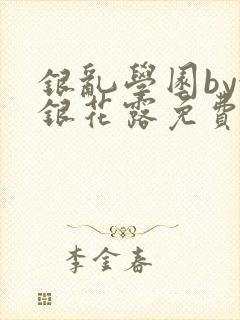 銀亂學園by
銀花露免費
李金春